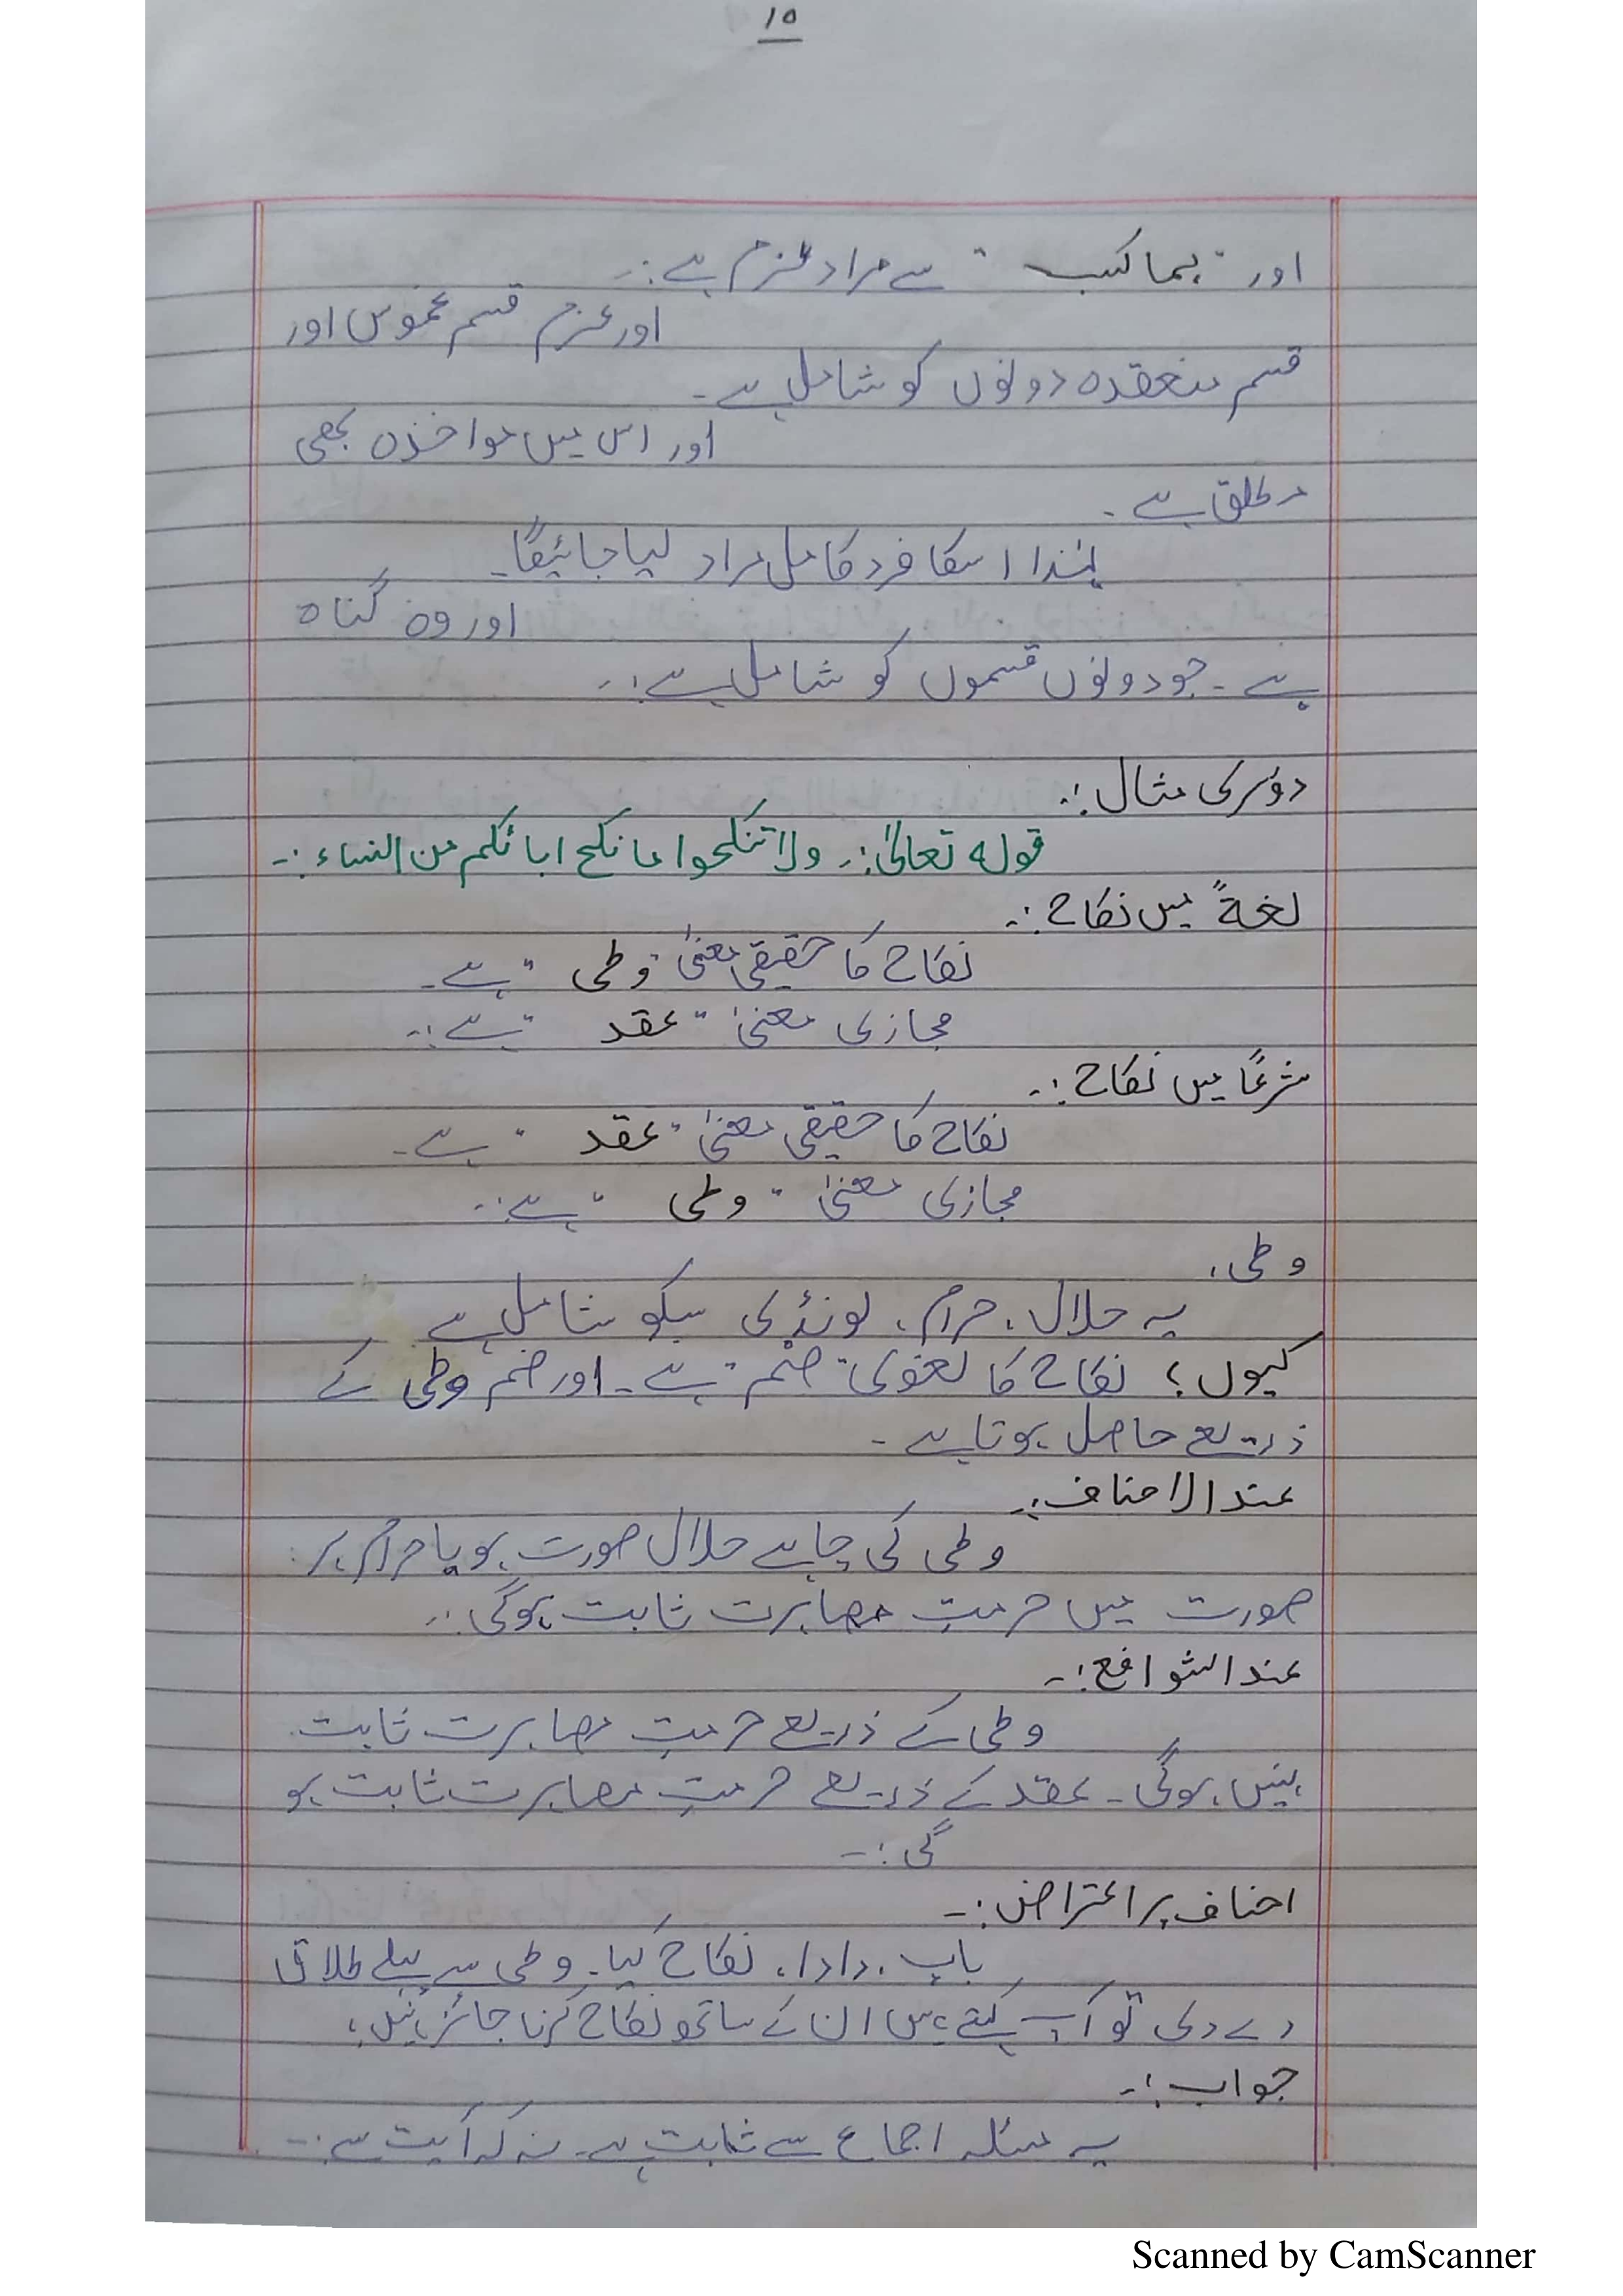 ۱۵
اور "بما کسب" سے مراد عزم ہے :۔
اور عزم قسم غموس اور
قسم منعقدہ دونوں کو شامل ہے۔
اور اس میں مواخذہ بھی
مطلق ہے۔
لہٰذا اسکا فرد کامل مراد لیا جائیگا۔
اور وہ گناہ
ہے۔ جو دونوں قسموں کو شامل ہے :۔
دوسری مثال :۔
قولہ تعالیٰ :۔ ولا تنکحوا ما نکح ابائکم من النساء :۔
لغۃً میں نکاح :۔
نکاح کا حقیقی معنیٰ "وطی" ہے۔
مجازی معنیٰ "عقد" ہے :۔
شرعًا میں نکاح :۔
نکاح کا حقیقی معنیٰ "عقد" ہے۔
مجازی معنیٰ "وطی" ہے :۔
وطی،
یہ حلال، حرام، لونڈی سبکو شامل ہے
کیوں؟ نکاح کا لغوی "ضم" ہے۔ اور ضم وطی کے
ذریعے حاصل ہوتا ہے۔
عند الاحناف :۔
وطی کی چاہے حلال صورت ہو یا حرام ہر
صورت میں حرمتِ مصاہرت ثابت ہوگی :۔
عند الشوافع :۔
وطی کے ذریعے حرمتِ مصاہرت ثابت
نہیں ہوگی۔ عقد کے ذریعے حرمتِ مصاہرت ثابت ہو
گی :۔
احناف پر اعتراض :۔
باپ، دادا، نکاح کیا۔ وطی سے پہلے طلاق
دے دی تو آپ کہتے ہیں ان کے ساتھ نکاح کرنا جائز نہیں؟
جواب :۔
یہ مسئلہ اجماع سے ثابت ہے۔ نہ کہ آیت سے :۔
Scanned by CamScanner